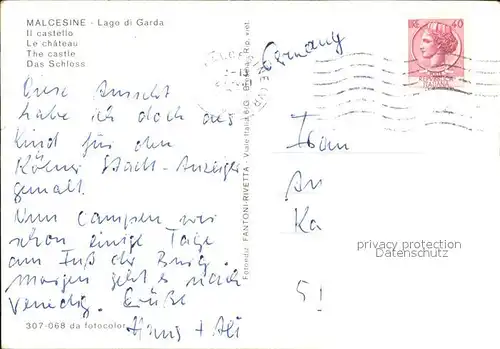 MALCESINE - Lago di Garda
Il castello
Le château
The castle
Das Schloss
Diese Ansicht
habe ich doch als
Kind für den
Kölner Stadt-Anzeiger
gemalt.
Nun campen wir
schon einige Tage
am Fuß der Burg.
Morgen geht es nach
Venedig. Grüße
Hans + Ali
307-068 da fotocolor
Fotoediz. FANTONI-RIVETTA - Viale Italia
Germany
40
privacy protection
Datenschutz